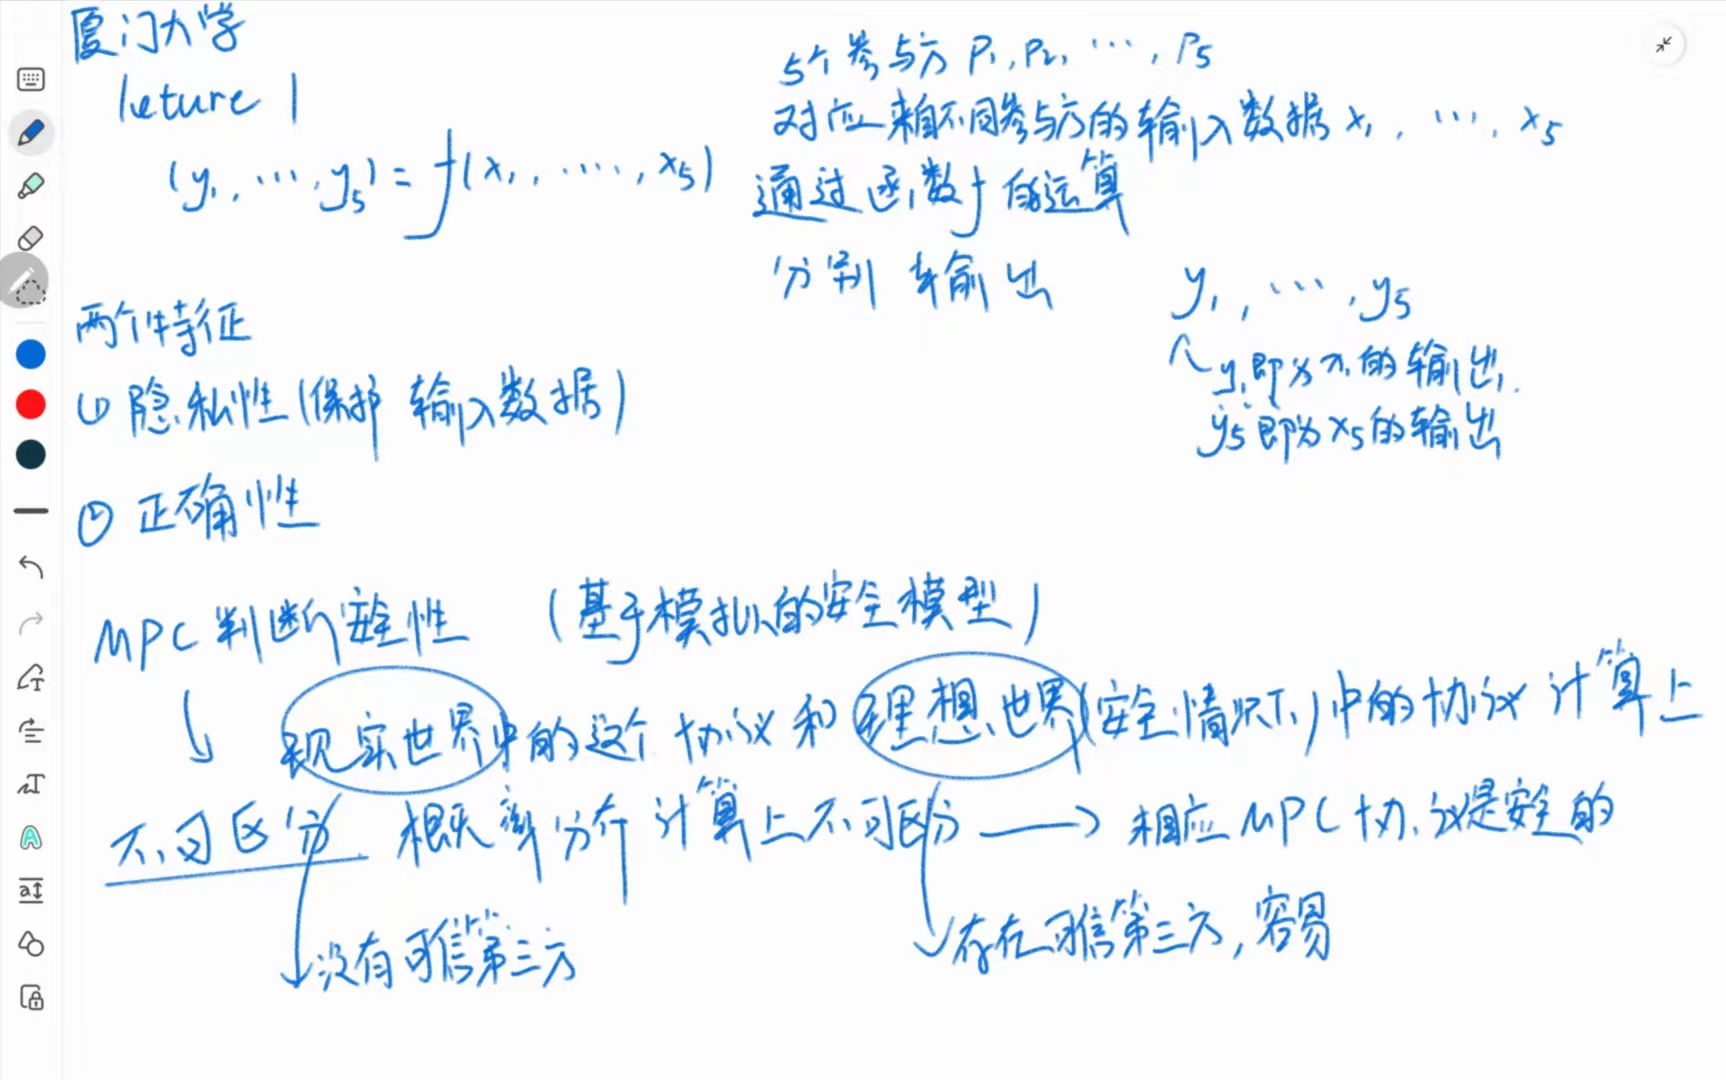 厦门大学
leture 1
(y₁, ···, y₅) = f(x₁, ····, x₅)
5个参与方 P₁, P₂, ···, P₅
对应来自不同参与方的输入数据 x₁, ···, x₅
通过函数f的运算
分别 输出 y₁, ···, y₅
y₁即为x₁的输出,
y₅即为x₅的输出
两个特征
① 隐私性 (保护 输入数据)
② 正确性
MPC 判断安全性 (基于模拟的安全模型)
现实世界中的这个 协议 和 理想世界(安全情况下)中的协议 计算上
不可区分 概率分布 计算上不可区分 → 相应MPC协议是安全的
没有可信第三方
存在可信第三方, 容易